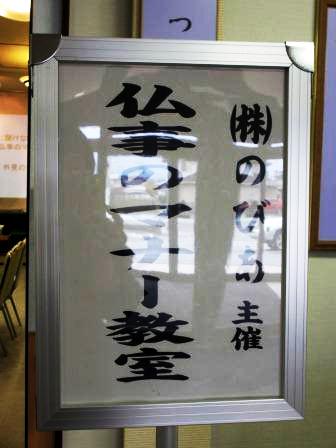 つ
㈱のびあ主催
仏事のマナー教室